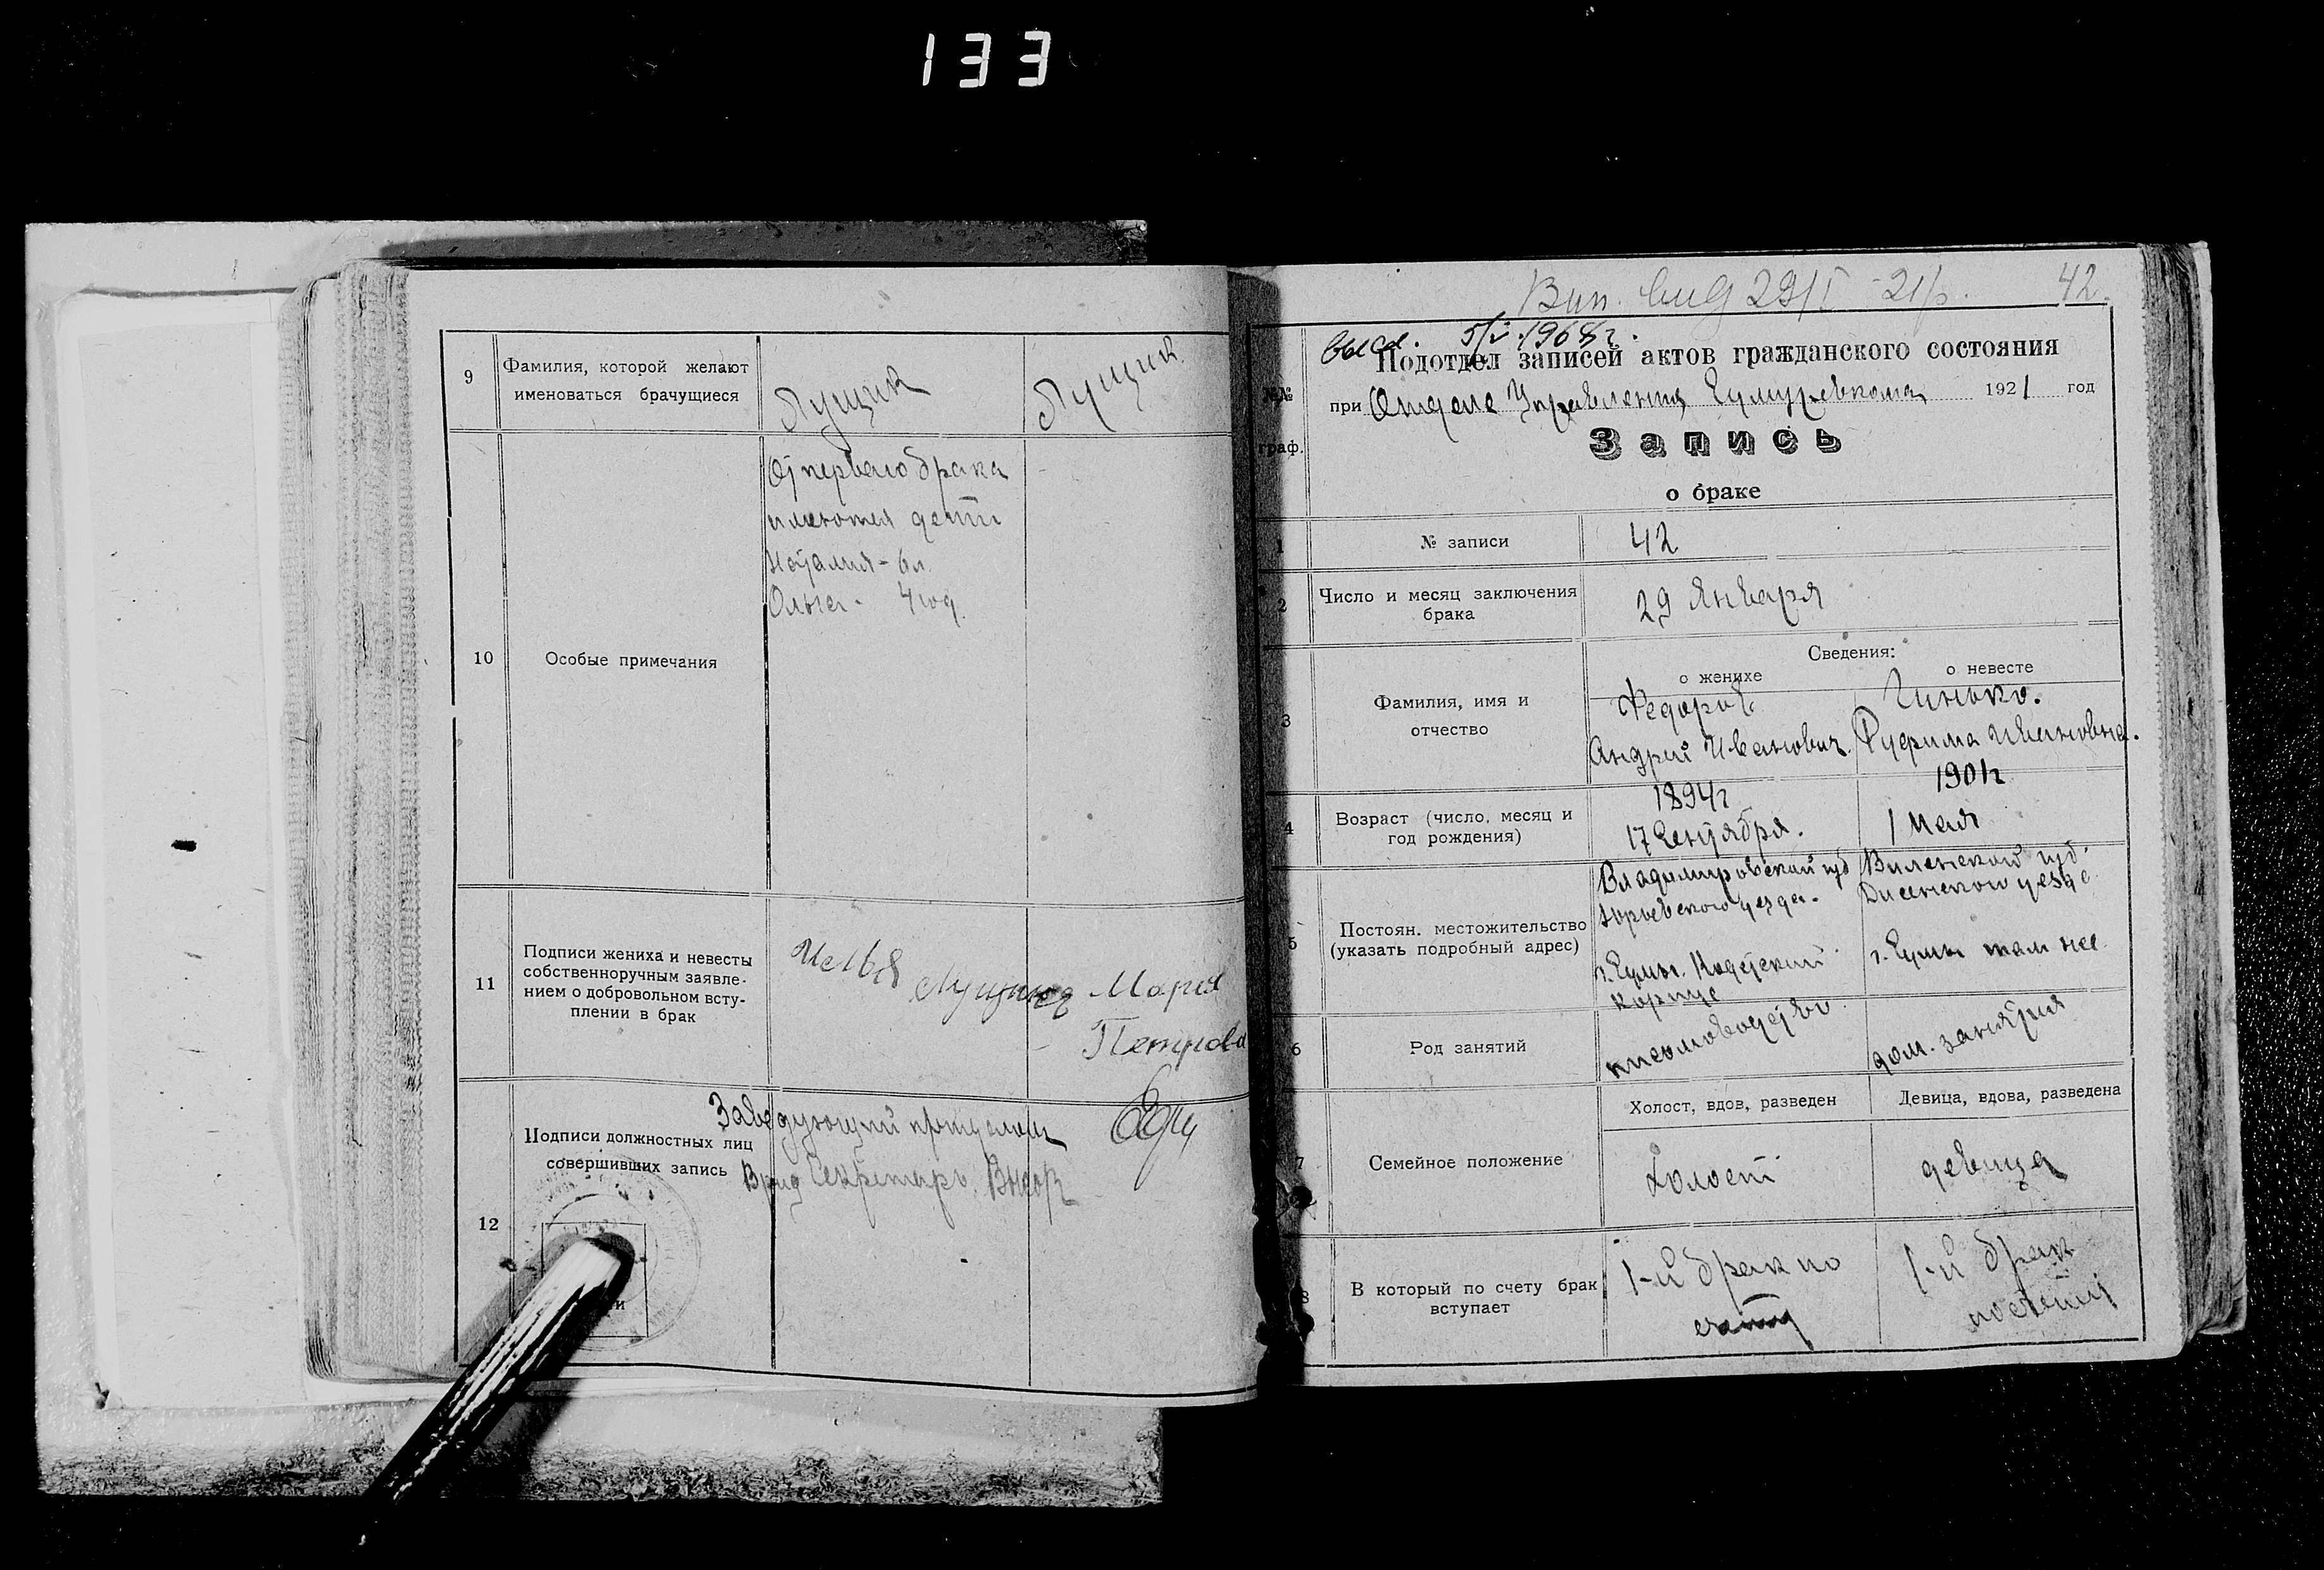 133
9
Фамилия, которой желают
именоваться брачущиеся
Лущик
Лущик
10
Особые примечания
От первого брака
имеются дети
Наталия - 6 л.
Ольга - 4 год.
11
Подписи жениха и невесты
собственноручным заявле-
нием о добровольном всту-
плении в брак
Илья Лущик
Мария
Петухова
12
Подписи должностных лиц
совершивших запись
Заведующий
Врид Секретарь
42.
Вып. вид 29/I-21 г.
5/V.1968г.
№№
граф.
Подотдел записей актов гражданского состояния
при Отделе Управления Сумуревкома 1921 год
Запись
о браке
1
№ записи
42
2
Число и месяц заключения
брака
29 Января
Сведения:
о женихе
о невесте
3
Фамилия, имя и
отчество
Федоров
Андрей Иванович.
Гинько.
Руфима Ивановна.
4
Возраст (число, месяц и
год рождения)
1894г
17 Сентября.
1901г
1 мая
5
Постоян. местожительство
(указать подробный адрес)
Владимировской губ
Юрьевского уезда.
г. Сумы. Кадетский
корпус
Виленской губ.
Дисенского уезда
г. Сумы там же
6
Род занятий
письмоводство
дом. занятия
7
Семейное положение
Холост, вдов, разведен
Девица, вдова, разведена
Холост
девица
8
В который по счету брак
вступает
1-й брак по
счету
1-й брак
по счету